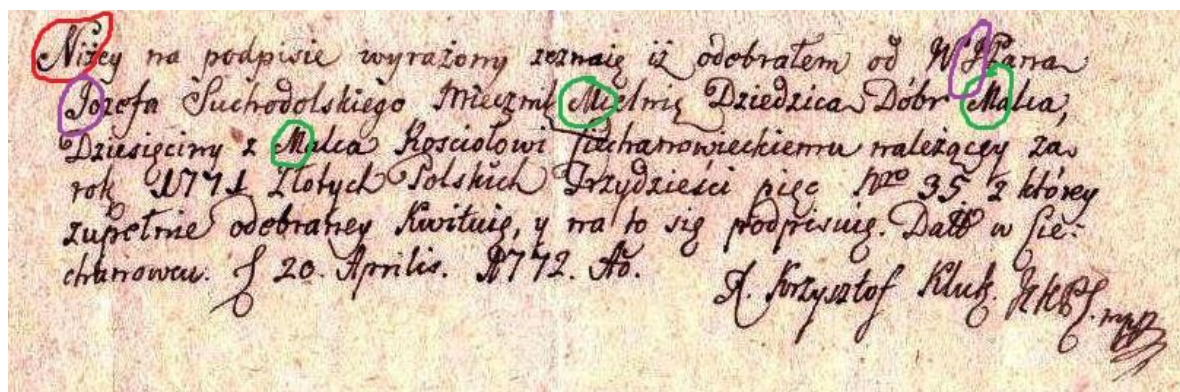 Niżey na podpisie wyrażony zeznaię iż odebrałem od W JPana
Jozefa Suchodolskiego Miecznik Mielnię Dziedzica Dóbr Malca,
Dziesięciny z Malca Kosciołowi Ciechanowieckiemu należącey za
rok 1771 Złotych Polskich Trzydzieści pięc Nro 35 z którey
zupełnie odebraney Kwituię, y na to się podpisuię. Datt w Cie-
chanowcu. 20. Aprilis. 1772. Ao.
X. Krzysztof Kluk. mpp